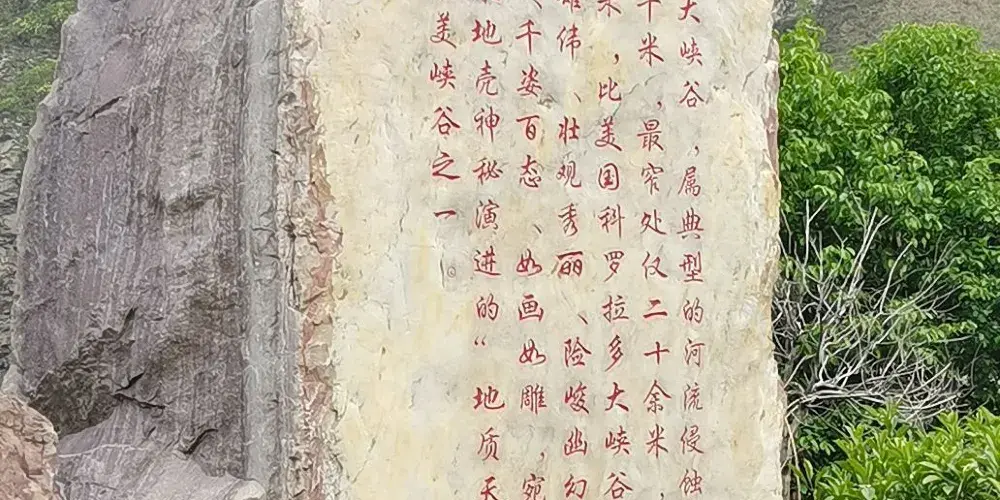 大峡谷，属典型的河流侵蚀
千米，最窄处仅二十余米，
米，比美国科罗拉多大峡谷
雄伟、壮观秀丽、险峻幽幻
、千姿百态、如画如雕，宛
地壳神秘演进的“地质天
美峡谷之一